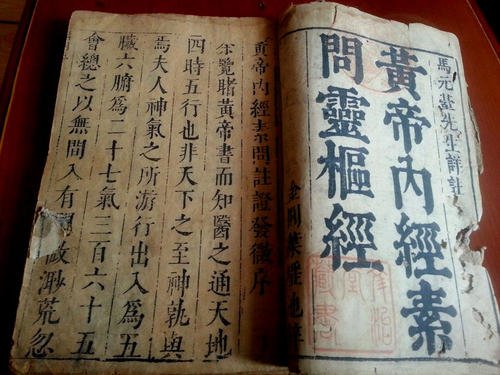 馬元臺先生詳註
黃帝內經素
問靈樞經
黃帝內經素問註證發微序
余覽睹黃帝書而知醫之通天地
四時五行也非天下之至神孰與
焉夫人神氣之所游行出入為五
臟六腑為二十七氣三百六十五
會總之以無間入有間故渺荒忽